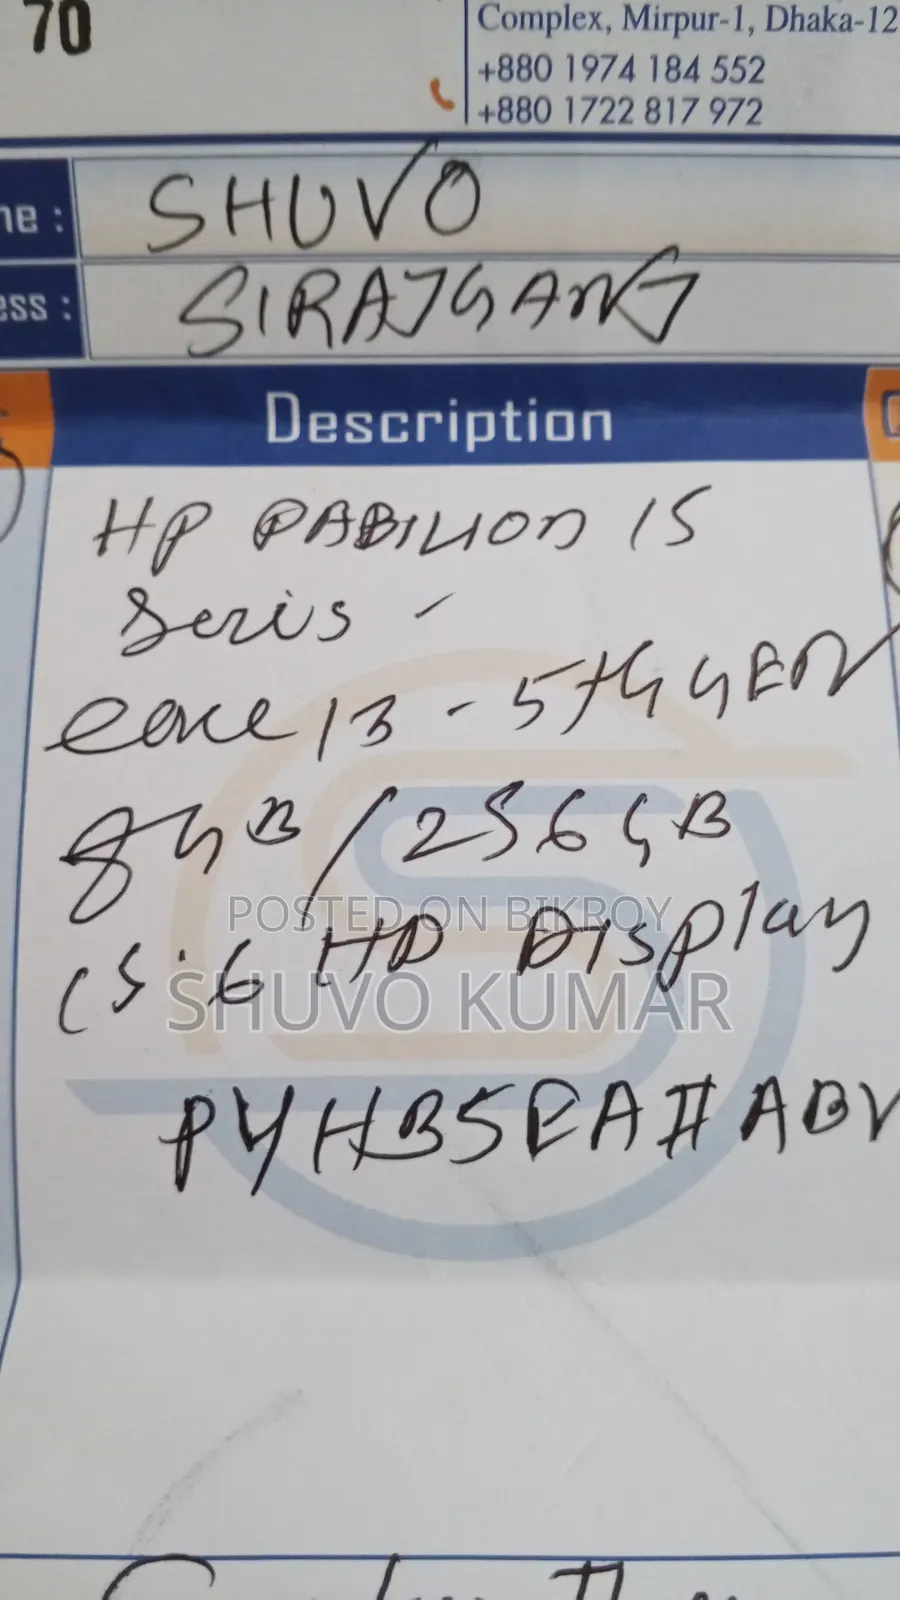 70
Complex, Mirpur-1, Dhaka-12
+880 1974 184 552
+880 1722 817 972
ne : SHUVO
ess : SIRAJGANG
Description
HP PABILION 15
Seris -
Core i3 - 5th GEN
8GB / 256GB
15.6 HD Display
POSTED ON BIKROY
SHUVO KUMAR
P4HB5EA#ABV